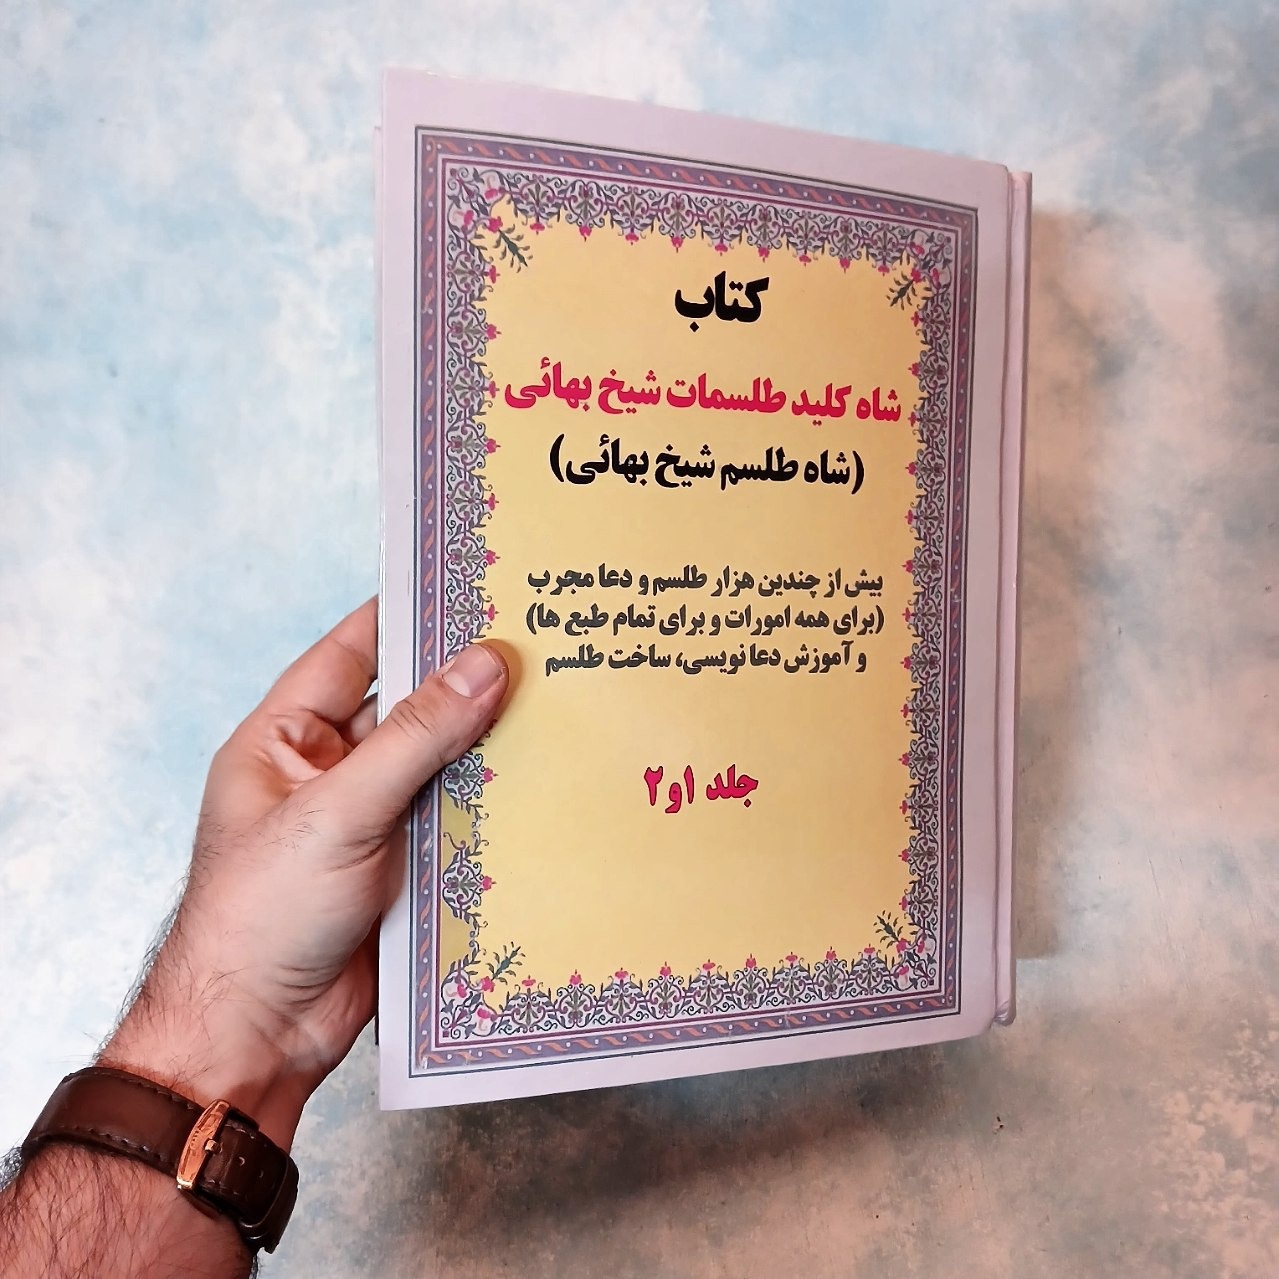 کتاب
شاه کلید طلسمات شیخ بهائی
(شاه طلسم شیخ بهائی)
بیش از چندین هزار طلسم و دعا مجرب
(برای همه امورات و برای تمام طبع ها)
و آموزش دعا نویسی، ساخت طلسم
جلد ۱و۲